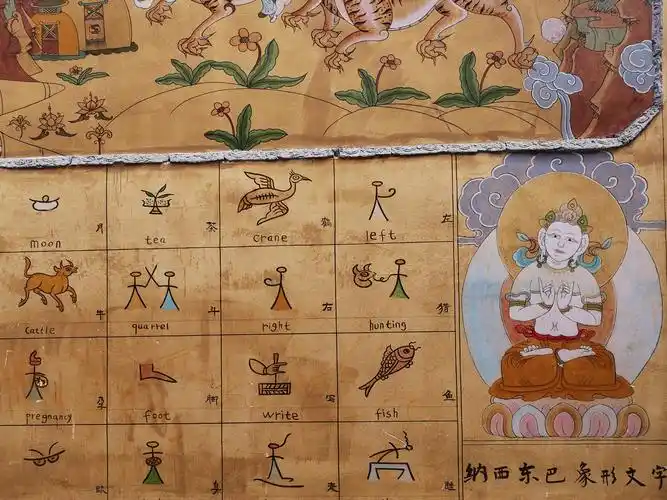 moon 月
tea 茶
crane 鹤
left 左
cattle 牛
quarrel 斗
right 右
hunting 猎
pregnancy 孕
foot 脚
write 写
fish 鱼
老
纳西东巴象形文字